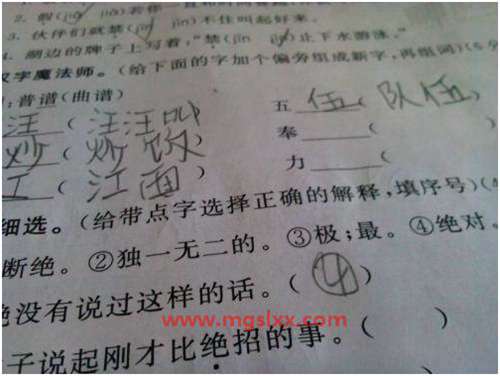 2. 假(jiǎ jià)若你一直
3. 伙伴们就禁(jìn jīn)不住叫起好来。
4. 湖边的牌子上写着,“禁(jīn jìn)止下水游泳。”
汉字魔法师。(给下面的字加个偏旁组成新字,再组词)(6分
:普 谱(曲谱)
五 伍( 队伍 )
汪( 汪汪叫
奉 (
炒( 炒饭
力 (
工( 江面 )
细选。(给带点字选择正确的解释,填序号)(4
断绝。②独一无二的。③极;最。④绝对。
绝没有说过这样的话。( ④ )
www.mgslxx.com
子说起刚才比绝招的事。( )